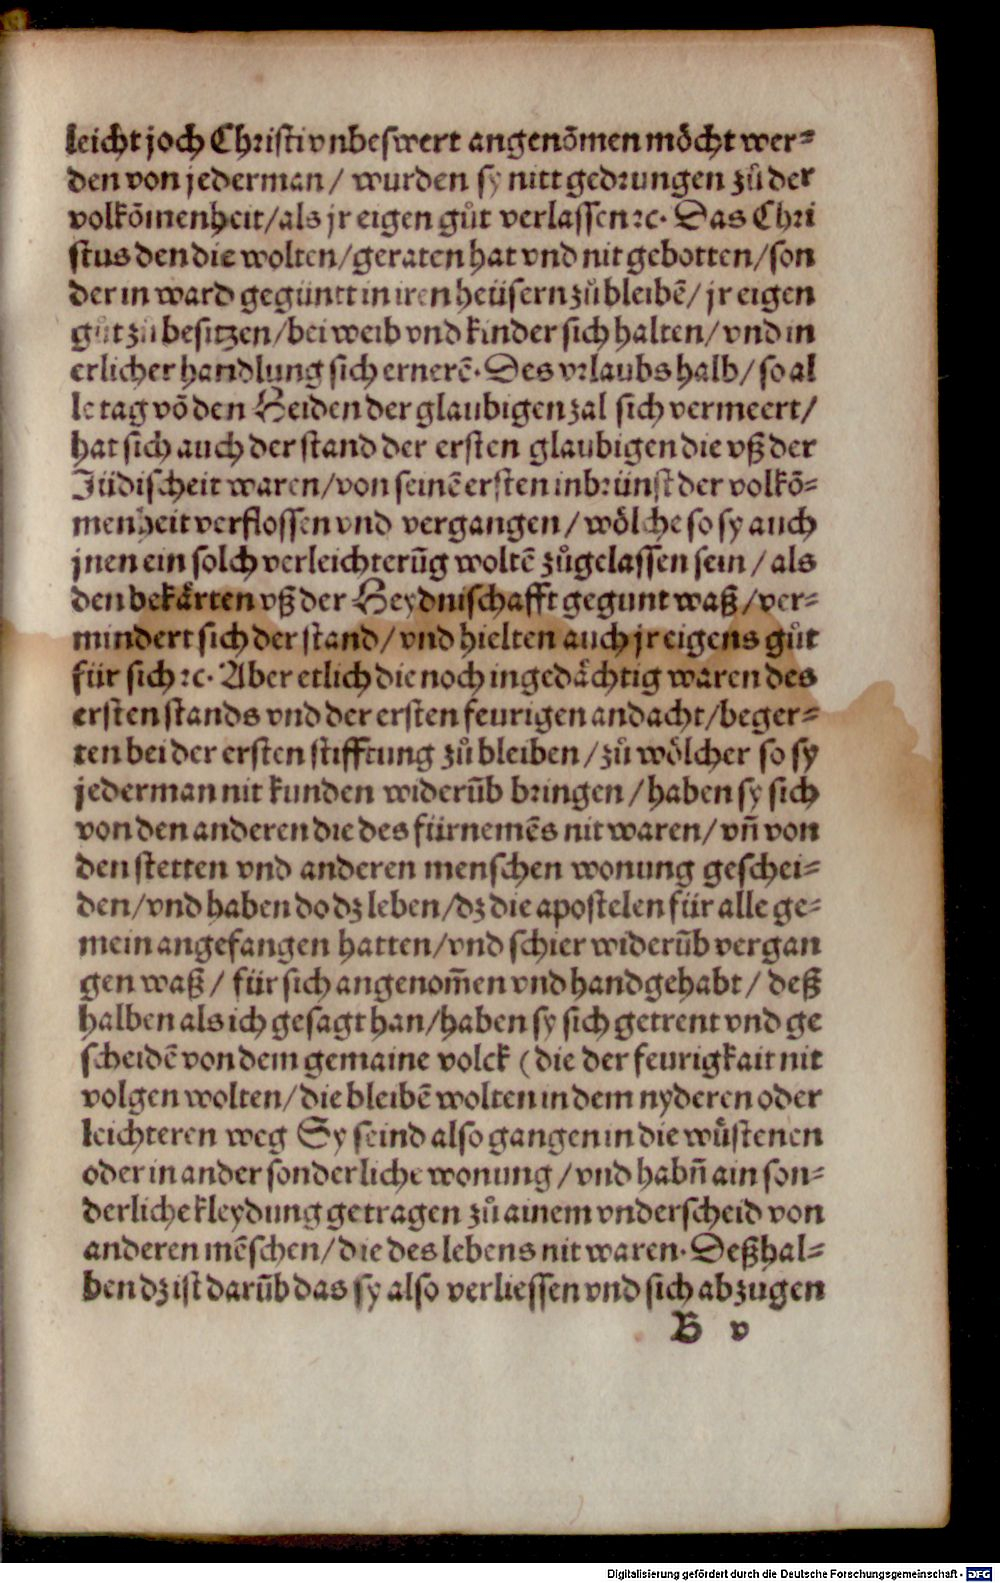 leicht joch Christi vnbeswert angenōmen möcht wer⸗
den von jederman / wurden sy nitt gedrungen zů der
volkōmenheit/als jr eigen gůt verlassen ꝛc. Das Chri
stus den die wolten/geraten hat vnd nit gebotten/son
der in ward gegüntt in iren heüsern zů bleibē/ jr eigen
gůt zů besitzen/bei weib vnd kinder sich halten/ vnd in
erlicher handlung sich ernerē. Des vrlaubs halb/ so al
le tag vō den Heiden der glaubigen zal sich vermeert/
hat sich auch der stand der ersten glaubigen die vß der
Jüdischeit waren/von seinē ersten inbrünst der volkō⸗
menheit verflossen vnd vergangen / wölche so sy auch
jnen ein solch verleichterūg woltē zůgelassen sein / als
den bekärten vß der Heydnischafft gegunt waß /ver⸗
mindert sich der stand/ vnd hielten auch jr eigens gůt
für sich ꝛc. Aber etlich die noch ingedächtig waren des
ersten stands vnd der ersten feurigen andacht/beger⸗
ten bei der ersten stifftung zů bleiben /zů wölcher so sy
jederman nit kunden widerūb bringen /haben sy sich
von den anderen die des fürnemēs nit waren/ vn̄ von
den stetten vnd anderen menschen wonung geschei⸗
den/vnd haben do dz leben/dz die apostelen für alle ge⸗
mein angefangen hatten/vnd schier widerūb vergan
gen waß / für sich angenom̄en vnd handgehabt / deß
halben als ich gesagt han/haben sy sich getrent vnd ge
scheidē von dem gemaine volck (die der feurigkait nit
volgen wolten/die bleibē wolten in dem nyderen oder
leichteren weg Sy seind also gangen in die wüstenen
oder in ander sonderliche wonung /vnd habn̄ ain son⸗
derliche kleydung getragen zů ainem vnderscheid von
anderen mēschen/die des lebens nit waren. Deßhal⸗
ben dz ist darūb das sy also verliessen vnd sich abzugen
B v
Digitalisierung gefördert durch die Deutsche Forschungsgemeinschaft - DFG